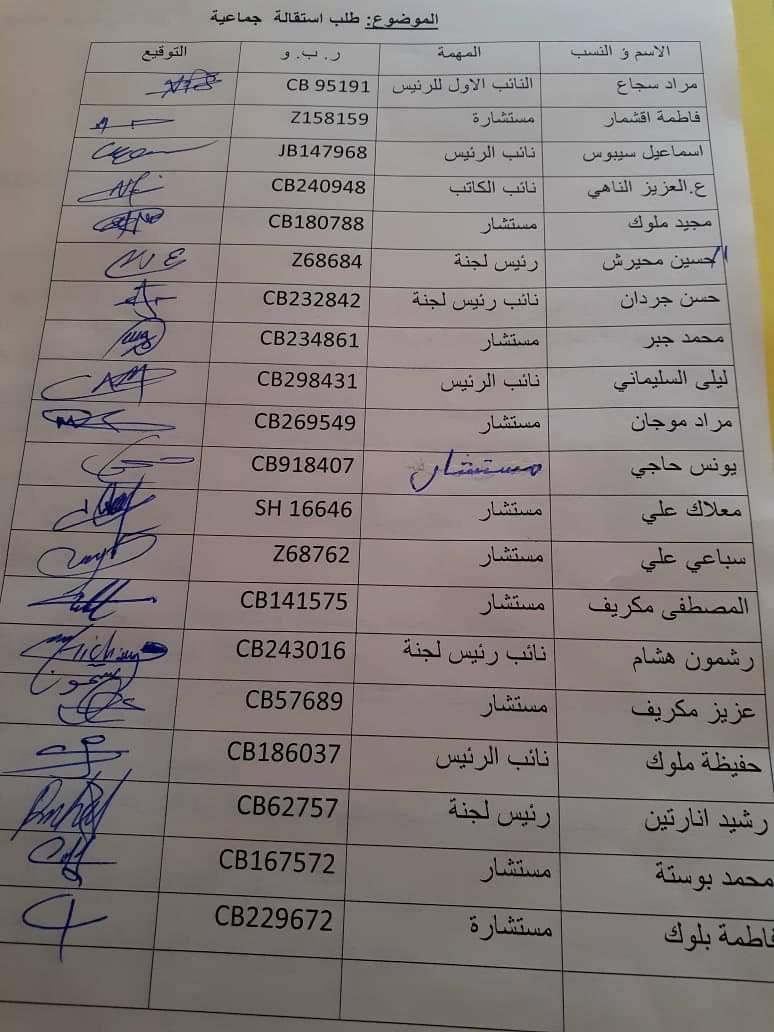 الموضوع: طلب استقالة جماعية
الاسم و النسب المهمة ر. ب. و التوقيع
مراد سجاع النائب الاول للرئيس CB 95191
فاطمة اقشمار مستشارة Z158159
اسماعيل سيبوس نائب الرئيس JB147968
ع.العزيز الناهي نائب الكاتب CB240948
مجيد ملوك مستشار CB180788
حسين محيرش رئيس لجنة Z68684
حسن جردان نائب رئيس لجنة CB232842
محمد جبر مستشار CB234861
ليلى السليماني نائب الرئيس CB298431
مراد موجان مستشار CB269549
يونس حاجي مستشار CB918407
معلاك علي مستشار SH 16646
سباعي علي مستشار Z68762
المصطفى مكريف مستشار CB141575
رشمون هشام نائب رئيس لجنة CB243016
عزيز مكريف مستشار CB57689
حفيظة ملوك نائب الرئيس CB186037
رشيد انارتين رئيس لجنة CB62757
محمد بوستة مستشار CB167572
فاطمة بلوك مستشارة CB229672